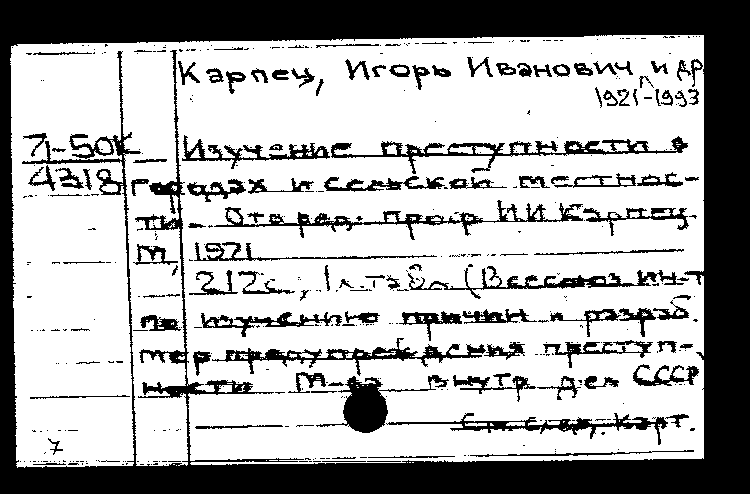 Карпец, Игорь Иванович и др
1921-1993
71-50К Изучение преступности в
4318 городах и сельской местнос-
ти. Отв ред. проф И И Карпец
М, 1971
212с, 1 л. табл (Всесоюз ин-т
по изучению причин и разраб.
мер предупреждения преступ-
ности М-ва внутр дел СССР
См. след. карт.
7